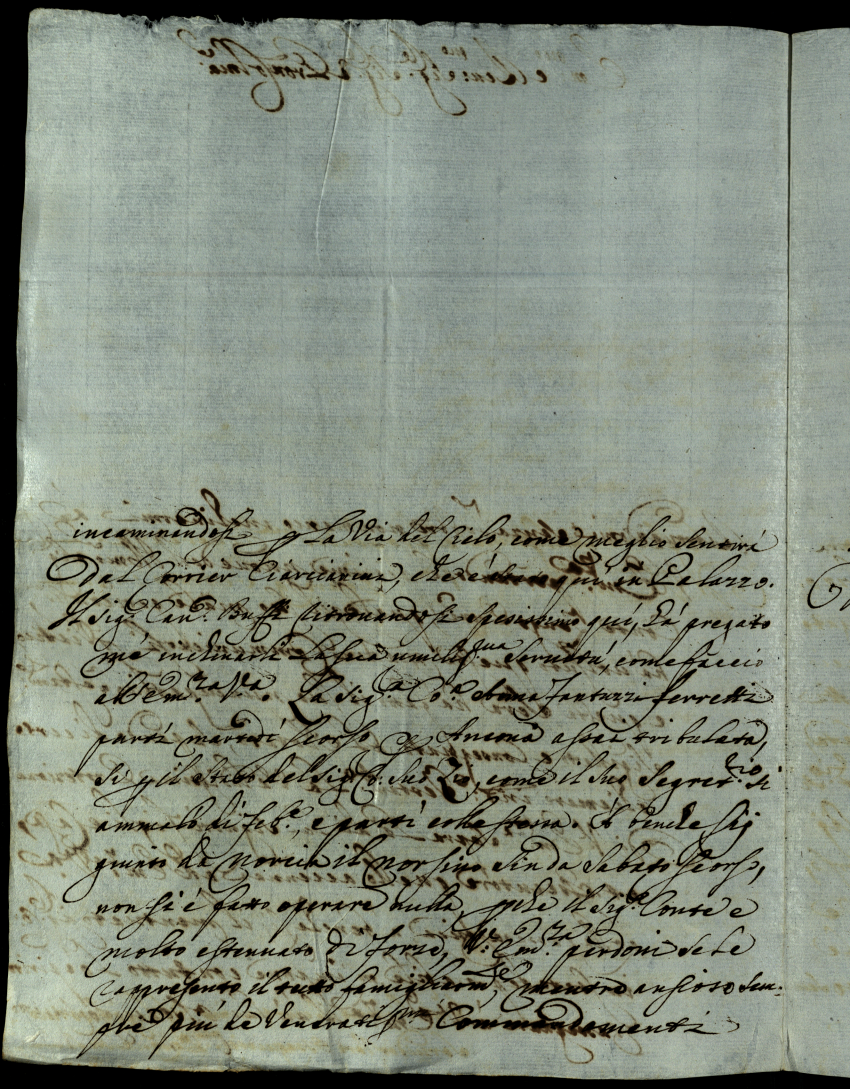 incaminandosi p la Via del Cielo, come meglio sentirà
dal Corrier, che è qui in Palazzo.
Il Sig.r Cau.r Buffi ritrouandosi spesissimo qui, hà pregato
mè inclinarli la sua umiliss.ma Seruitù, come faccio
all'Em.za V.a. La Sig.ra Co.a Anna Fantuzzi Ferretti
partì martedì scorso p Ancona assai tribulata,
si p il stato del Sig.r Co: suo Zio, come il suo Segret.rio si
ammalò di feb.e, e partì colle stessa. E benche sij
giunto da Norcia il Norsino sin da Sabato scorso,
non si è fatto operare nulla, pche il Sig.r Conte è
molto estenuato di forze, V: Em.za perdoni se le
rappresento il tutto famigliarm.te, mentre ansioso sem-
pre più de Veneratiss.mi Commandamenti